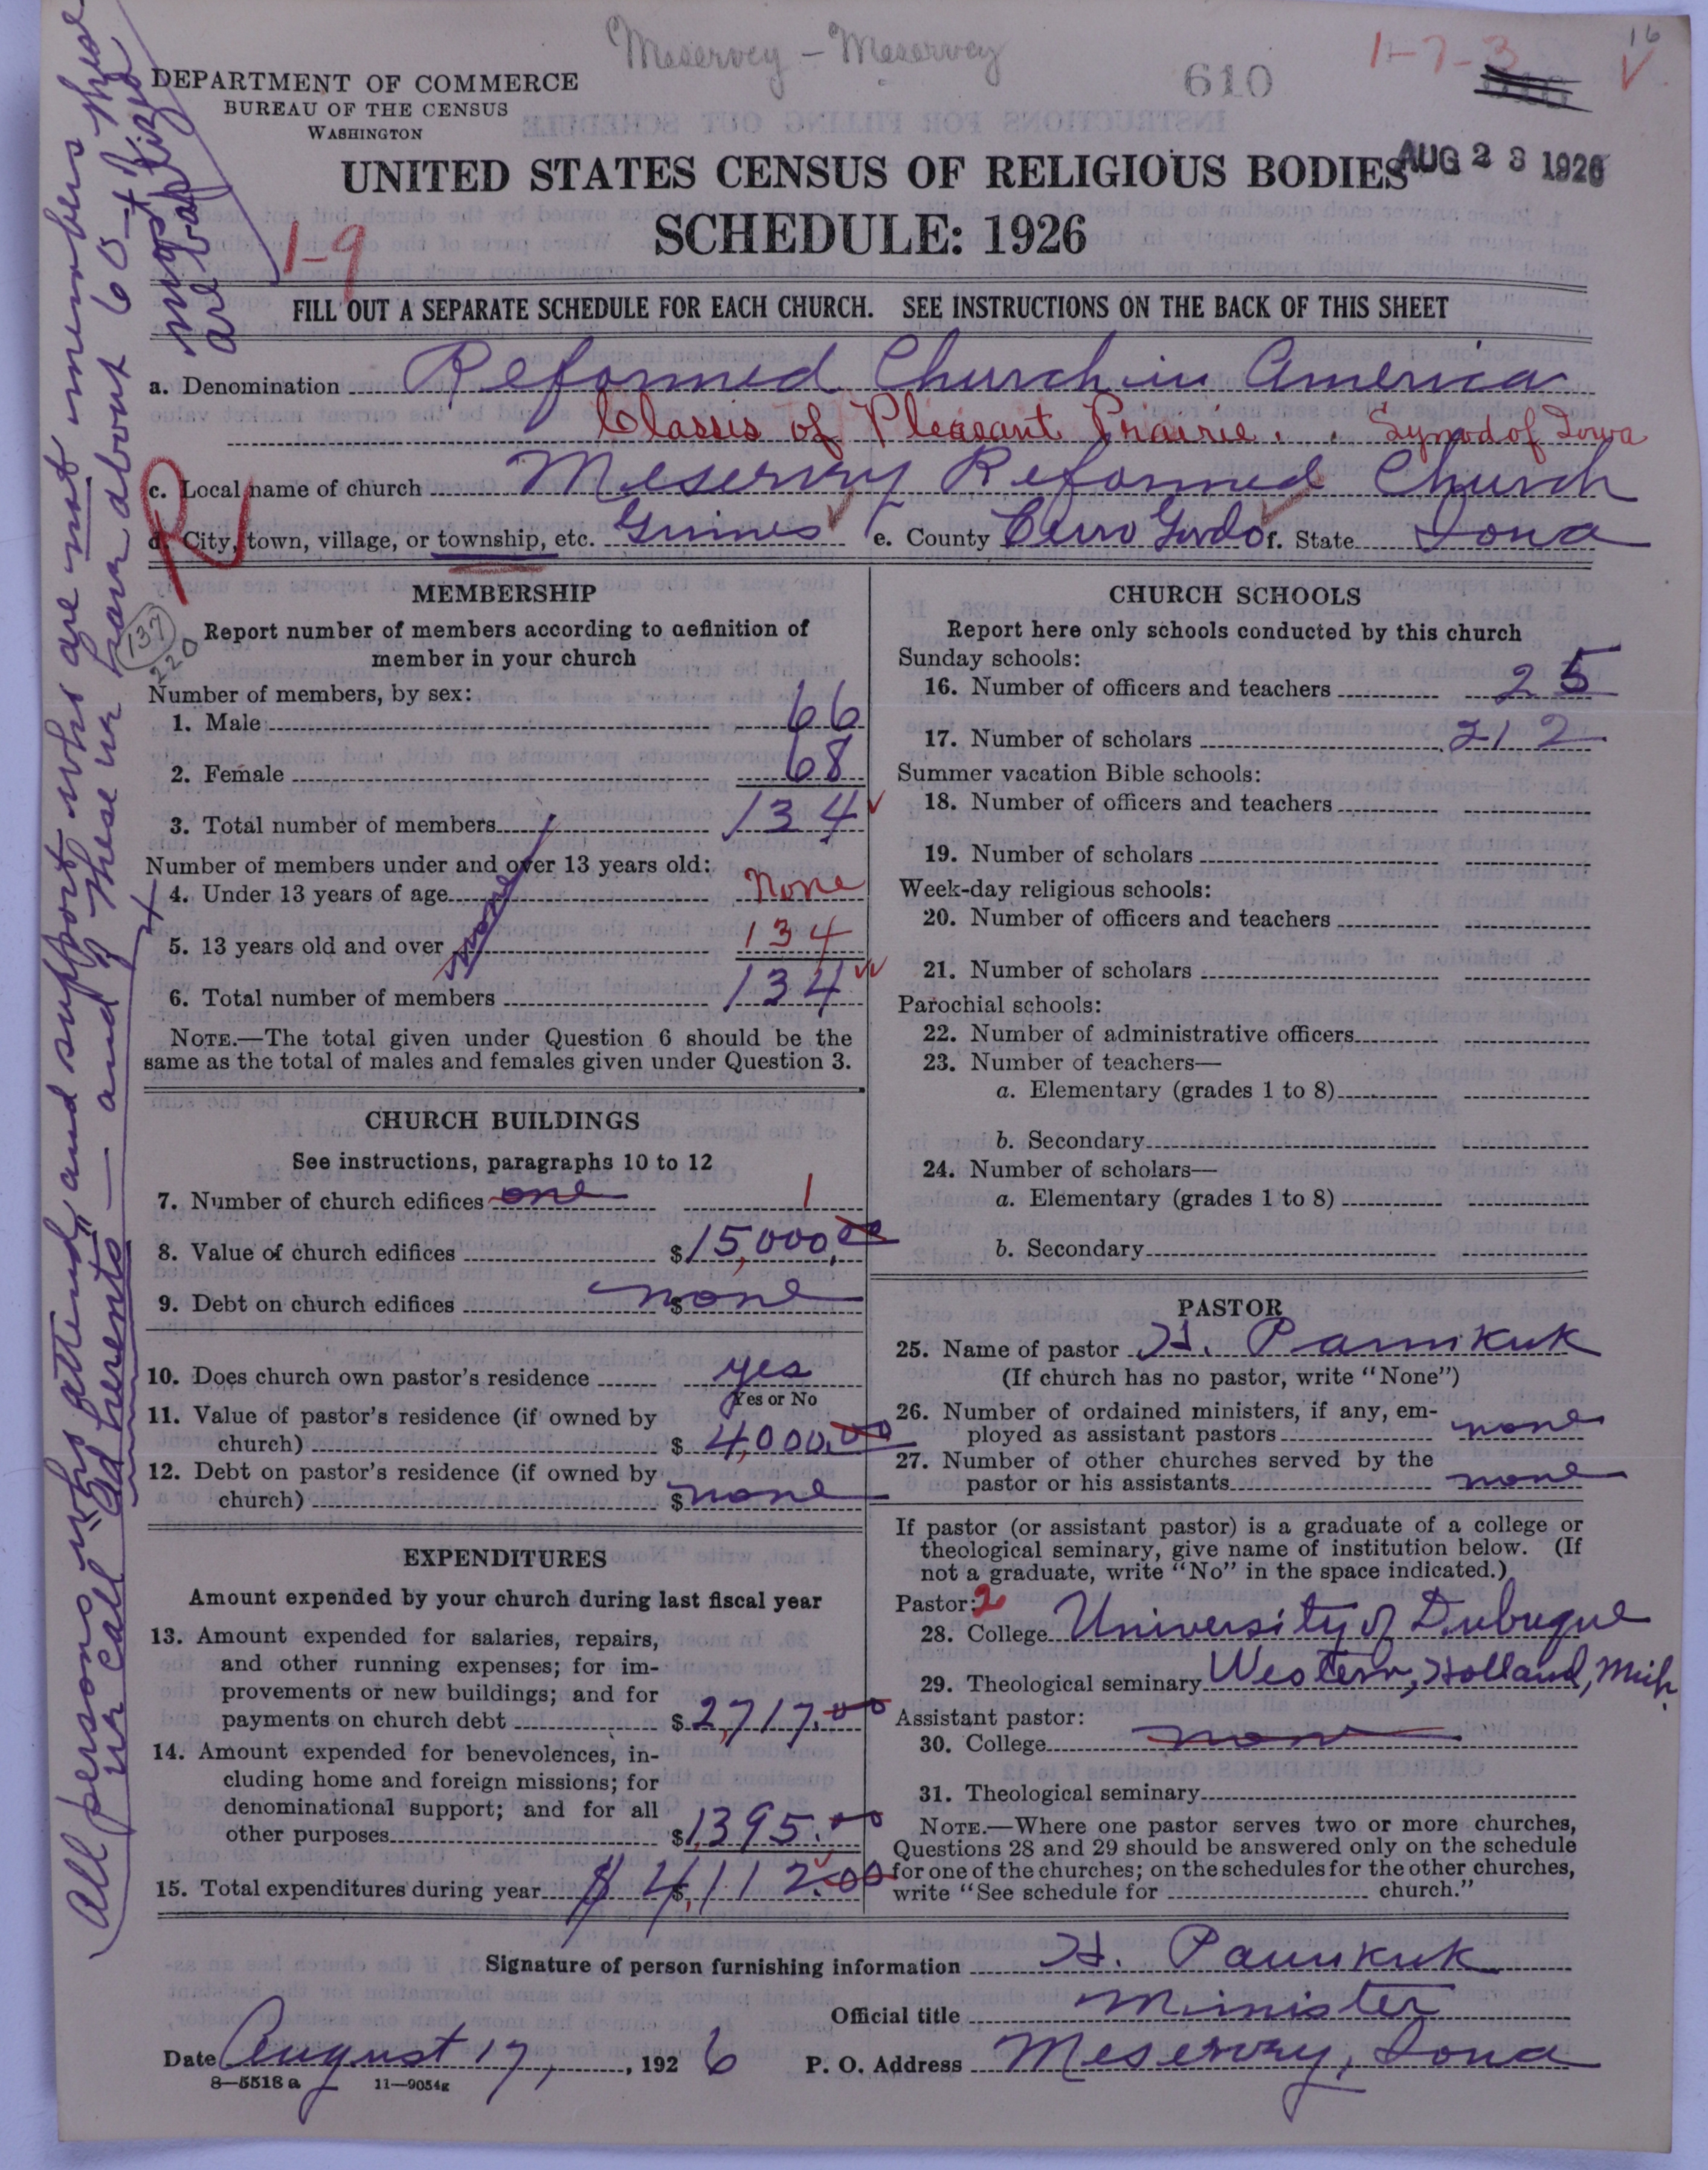 Meservey - Meservey
1-7-3
16
610
DEPARTMENT OF COMMERCE
BUREAU OF THE CENSUS
WASHINGTON
UNITED STATES CENSUS OF RELIGIOUS BODIES
AUG 23 1926
SCHEDULE: 1926
1-9
FILL OUT A SEPARATE SCHEDULE FOR EACH CHURCH. SEE INSTRUCTIONS ON THE BACK OF THIS SHEET
a. Denomination Reformed Church in America
Classis of Pleasant Prairie. Synod of Iowa
c. Local name of church Meservey Reformed Church
d. City, town, village, or township, etc. Grimes e. County Cerro Gordo f. State Iowa
MEMBERSHIP
Report number of members according to definition of
member in your church
137
220
Number of members, by sex:
1. Male 66
2. Female 68
3. Total number of members 134
Number of members under and over 13 years old:
4. Under 13 years of age None
none
5. 13 years old and over 134
6. Total number of members 134
NOTE.—The total given under Question 6 should be the
same as the total of males and females given under Question 3.
CHURCH BUILDINGS
See instructions, paragraphs 10 to 12
7. Number of church edifices one 1
8. Value of church edifices $15,000.00
9. Debt on church edifices $ none
10. Does church own pastor's residence yes
Yes or No
11. Value of pastor's residence (if owned by
church) $ 4,000.00
12. Debt on pastor's residence (if owned by
church) $ none
EXPENDITURES
Amount expended by your church during last fiscal year
13. Amount expended for salaries, repairs,
and other running expenses; for im-
provements or new buildings; and for
payments on church debt $ 2,717.00
14. Amount expended for benevolences, in-
cluding home and foreign missions; for
denominational support; and for all
other purposes $ 1,395.00
15. Total expenditures during year $ $ 4,112.00
CHURCH SCHOOLS
Report here only schools conducted by this church
Sunday schools:
16. Number of officers and teachers 25
17. Number of scholars 212
Summer vacation Bible schools:
18. Number of officers and teachers
19. Number of scholars
Week-day religious schools:
20. Number of officers and teachers
21. Number of scholars
Parochial schools:
22. Number of administrative officers
23. Number of teachers—
a. Elementary (grades 1 to 8)
b. Secondary
24. Number of scholars—
a. Elementary (grades 1 to 8)
b. Secondary
PASTOR
25. Name of pastor H. Pannkuk
(If church has no pastor, write "None")
26. Number of ordained ministers, if any, em-
ployed as assistant pastors none
27. Number of other churches served by the
pastor or his assistants none
If pastor (or assistant pastor) is a graduate of a college or
theological seminary, give name of institution below. (If
not a graduate, write "No" in the space indicated.)
Pastor: 2
28. College University of Dubuque
29. Theological seminary Western, Holland, Mich.
Assistant pastor:
30. College none
31. Theological seminary
NOTE.—Where one pastor serves two or more churches,
Questions 28 and 29 should be answered only on the schedule
for one of the churches; on the schedules for the other churches,
write "See schedule for church."
Signature of person furnishing information H. Pannkuk
Official title Minister
Date August 17, 1926 P. O. Address Meservey, Iowa
8—5518 a 11—9054g
All persons who attend and support who are not members here
we call "adherents" — and of these we have about 60 +
most are baptized